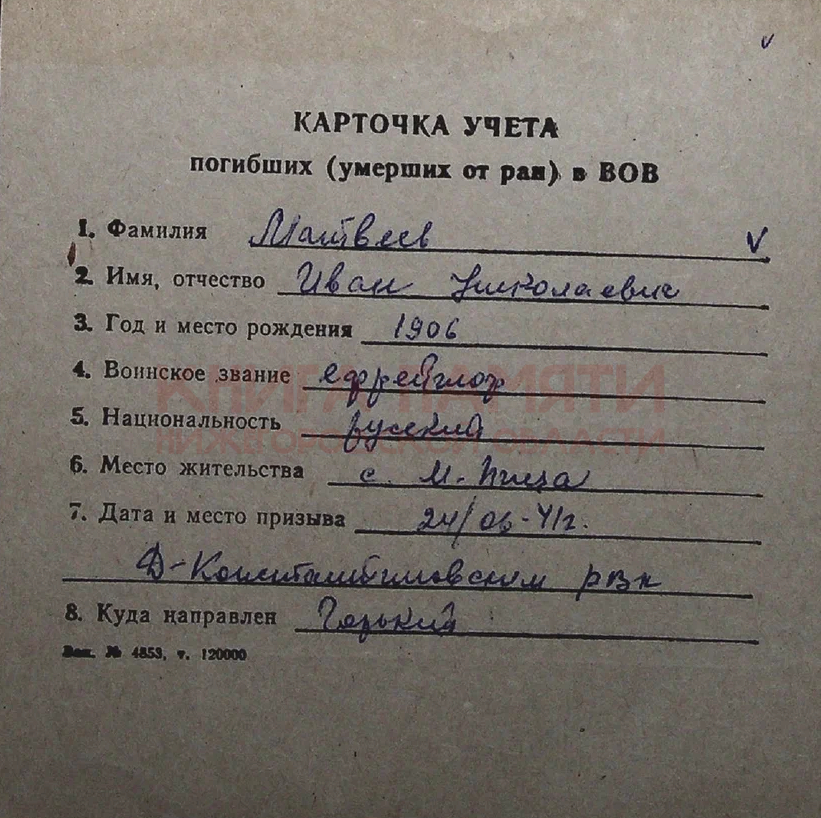 КАРТОЧКА УЧЕТА
погибших (умерших от ран) в ВОВ
1. Фамилия Матвеев V
2. Имя, отчество Иван Николаевич
3. Год и место рождения 1906
4. Воинское звание ефрейтор
5. Национальность русский
КНИГА ПАМЯТИ
НИЖЕГОРОДСКОЙ ОБЛАСТИ
6. Место жительства с. М-Пица
7. Дата и место призыва 24/06-41г.
Д-Константиновским рвк
8. Куда направлен Горький
Зак. № 4853, т. 120000